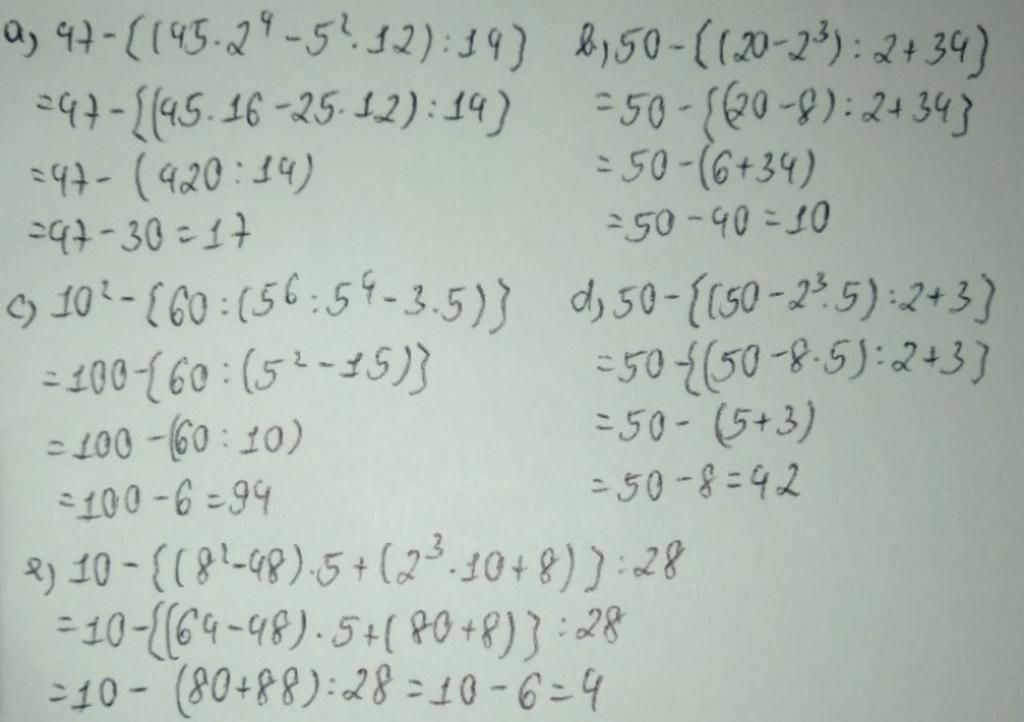 a, 47-{(45.2⁴-5².12):14}
=47-{(45.16-25.12):14}
=47-(420:14)
=47-30=17
b, 50-{(20-2³):2+34}
=50-{(20-8):2+34}
=50-(6+34)
=50-40=10
c) 10²-{60:(5⁶:5⁴-3.5)}
=100-{60:(5²-15)}
=100-(60:10)
=100-6=94
d, 50-{(50-2³.5):2+3}
=50-{(50-8.5):2+3}
=50-(5+3)
=50-8=42
e) 10-{(8²-48).5+(2³.10+8)}:28
=10-{(64-48).5+(80+8)}:28
=10-(80+88):28=10-6=4